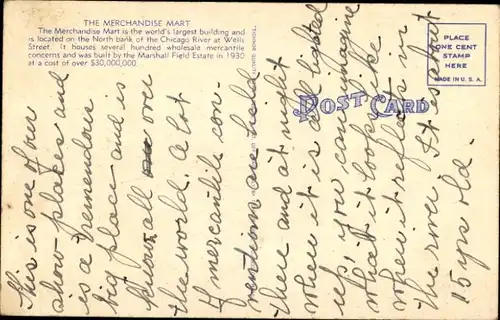 THE MERCHANDISE MART
The Merchandise Mart is the world's largest building and
is located on the North bank of the Chicago River at Wells
Street. It houses several hundred wholesale mercantile
concerns and was built by the Marshall Field Estate in 1930
at a cost of over $30,000,000.
POST CARD
PLACE
ONE CENT
STAMP
HERE
MADE IN U. S. A.
This is one of our
show-places and
is a tremendous
big place and is
known all over
the world. A lot
of mercantile con-
ventions are held
there and at night
when it is all lighted
up, you can imagine
what it looks like
when it reflects in
the river. It is about
15 yrs old.